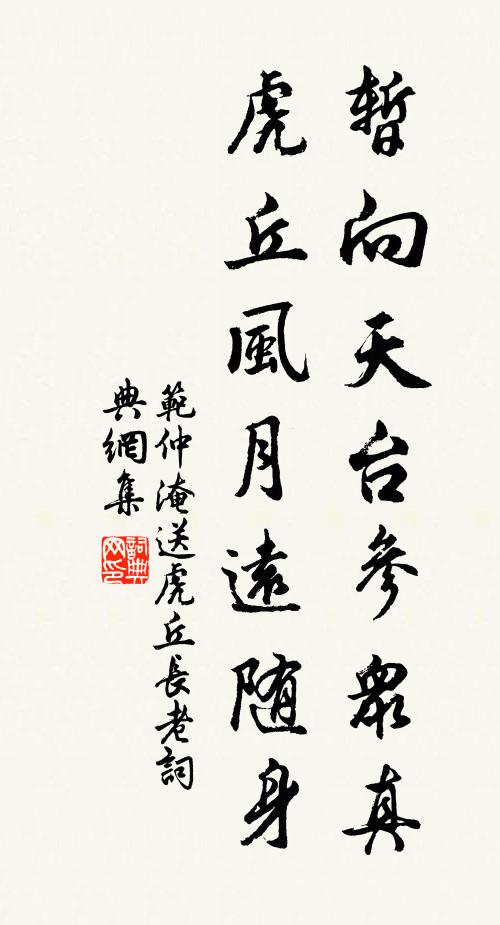 暫向天台參眾真
虎丘風月遠随身
範仲淹送虎丘長老詞
典網集
詞典网印